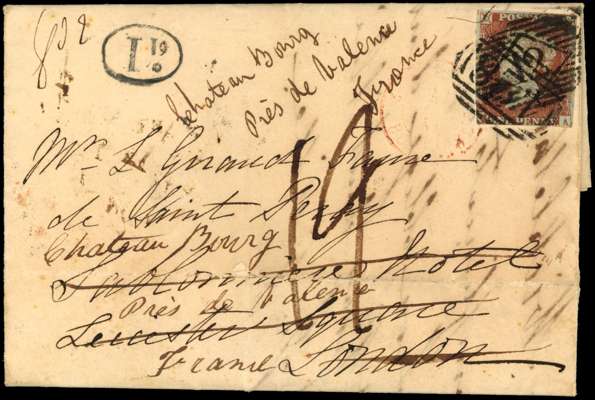 832
1 19/0
Chateau Bourg
Près de Valence
France
POSTAGE
PENNY
A
19
Mr L Giraud
de Saint Peray
Chateau Bourg
Sablonniere Hotel
Près de Valence
Leicester Square
France London